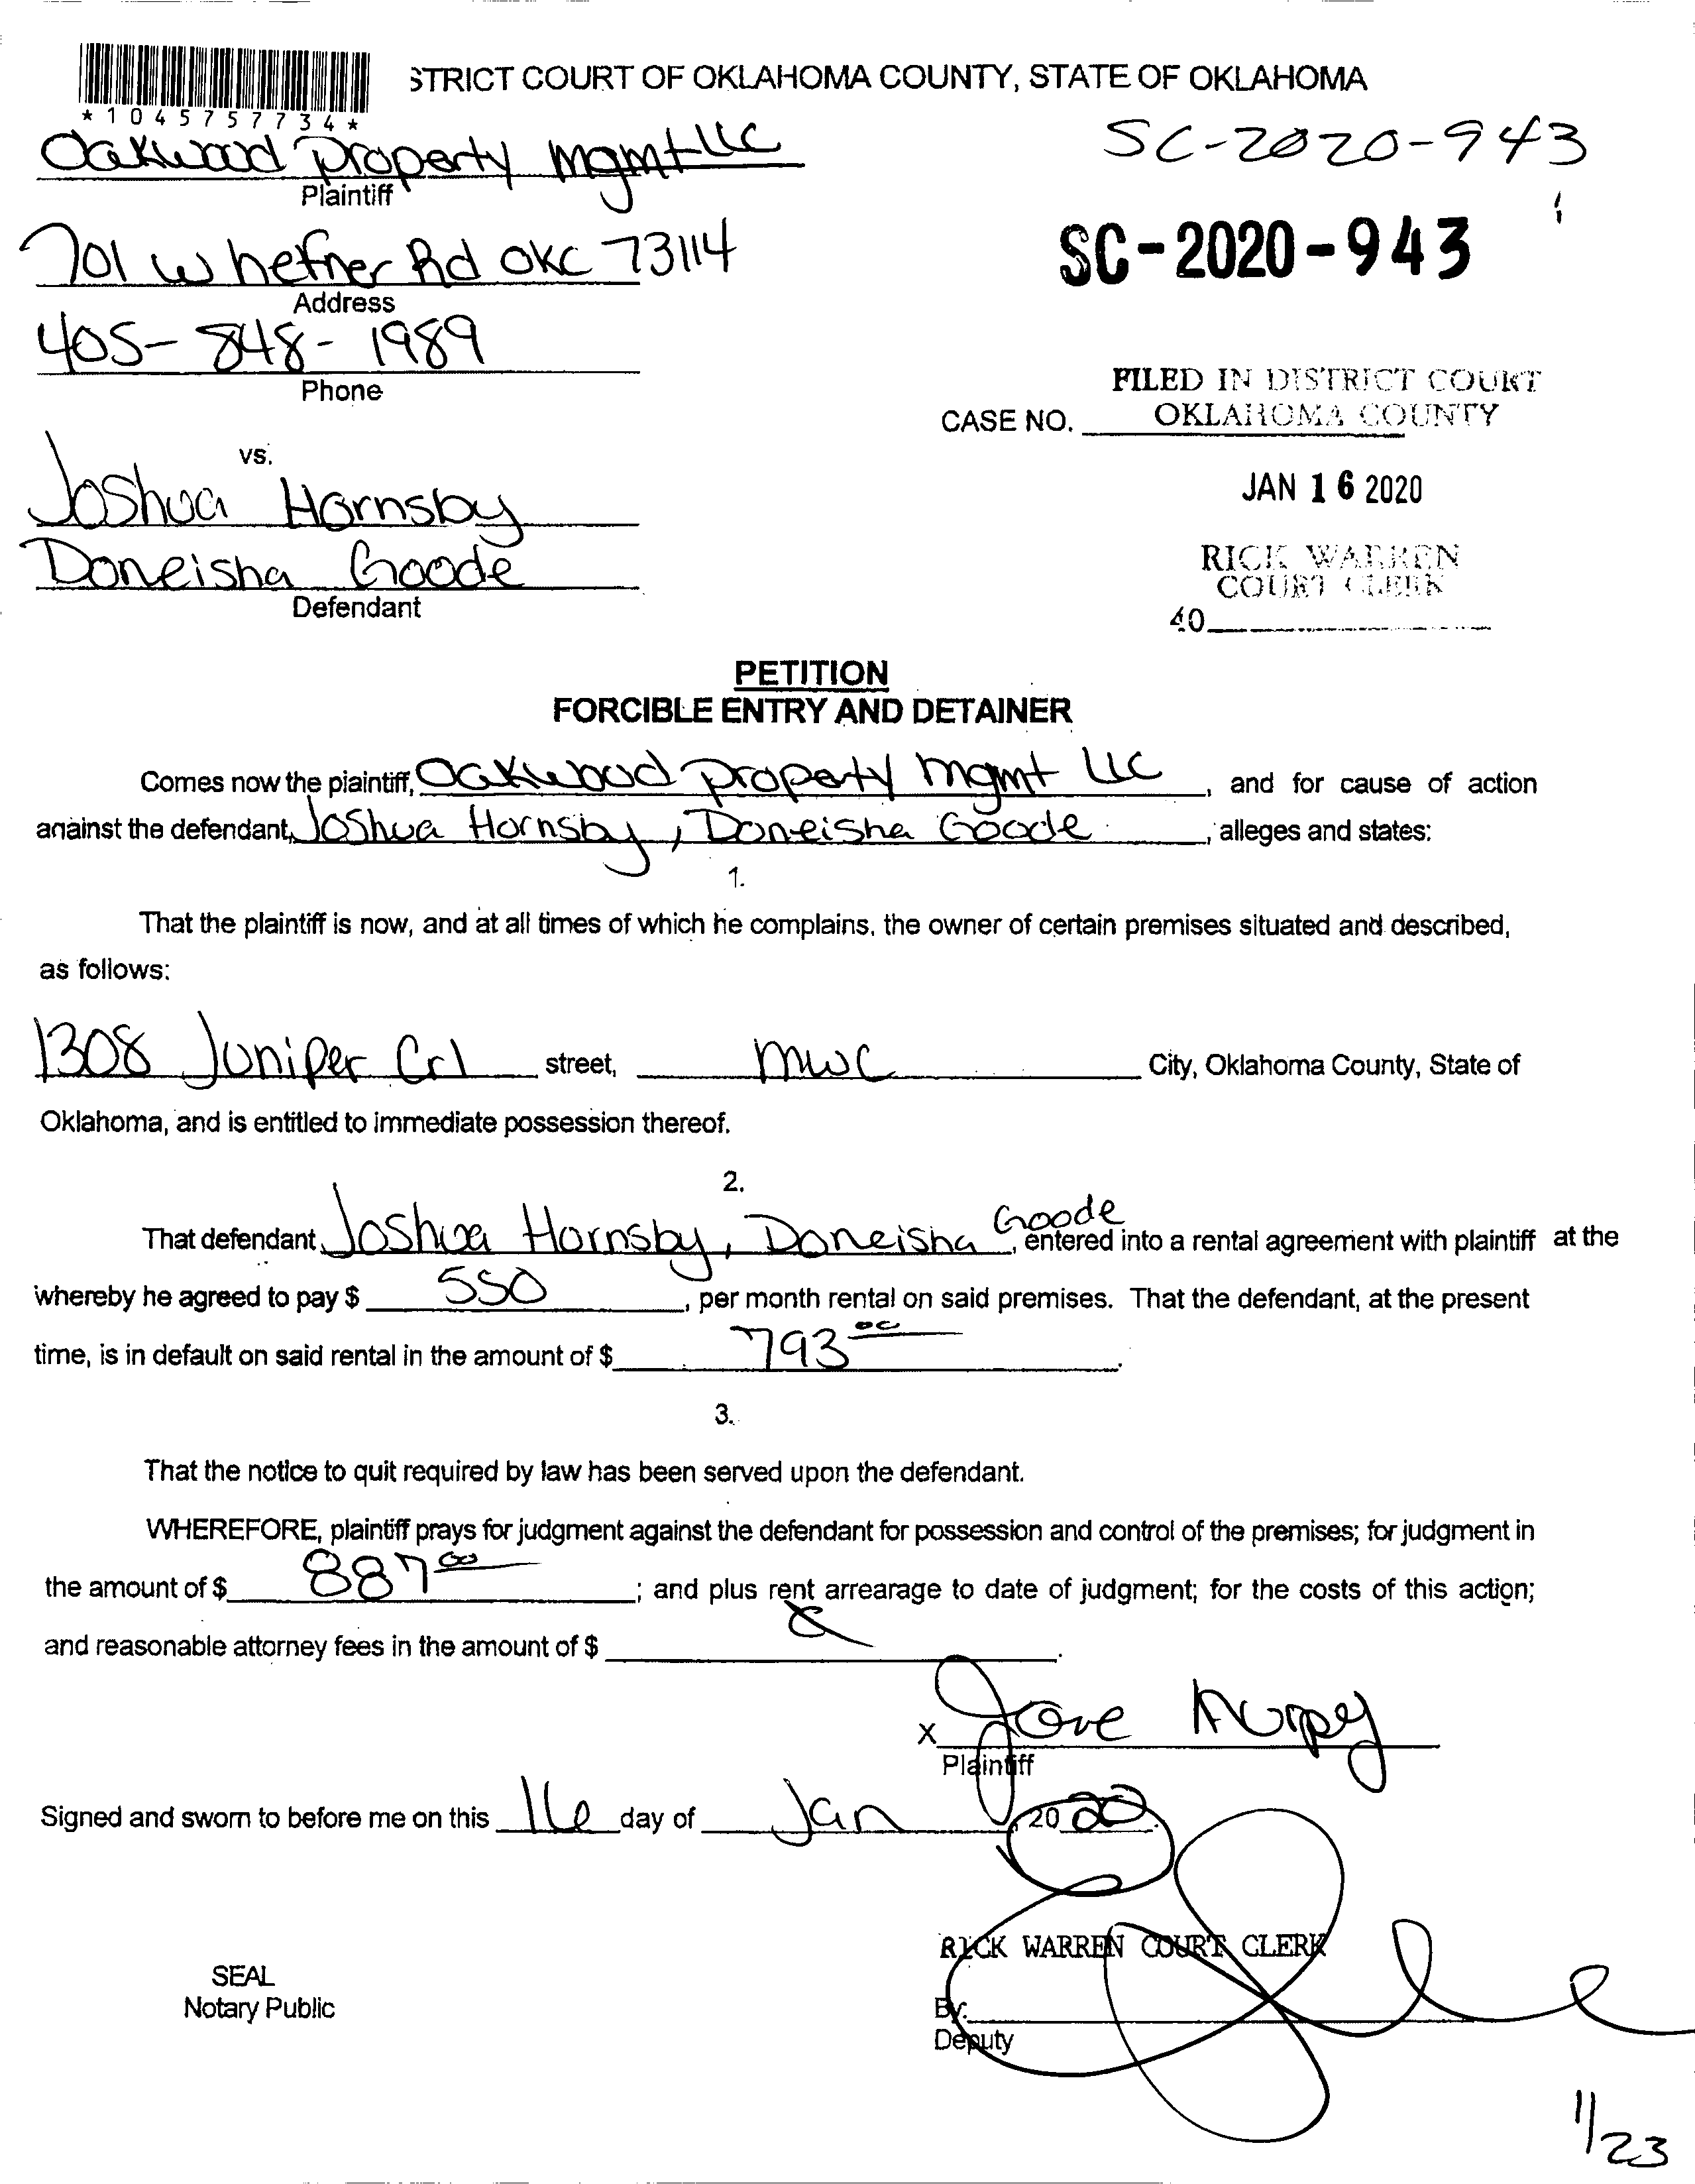 STRICT COURT OF OKLAHOMA COUNTY, STATE OF OKLAHOMA
*1045757734*
Oakwood Property Mgmt LLC
Plaintiff
SC-2020-943
701 W hefner Rd OKC 73114
Address
SC-2020-943
405-848-1989
Phone
FILED IN DISTRICT COURT
OKLAHOMA COUNTY
CASE NO.
vs.
JAN 16 2020
Joshua Hornsby
Doneisha Goode
Defendant
RICK WARREN
COURT CLERK
40
PETITION
FORCIBLE ENTRY AND DETAINER
Comes now the plaintiff, Oakwood Property Mgmt LLC, and for cause of action
against the defendant, Joshua Hornsby, Doneisha Goode, alleges and states:
1.
That the plaintiff is now, and at all times of which he complains, the owner of certain premises situated and described,
as follows:
1308 Juniper Crl street, mwc City, Oklahoma County, State of
Oklahoma, and is entitled to immediate possession thereof.
2.
That defendant, Joshua Hornsby, Doneisha Goode, entered into a rental agreement with plaintiff at the
whereby he agreed to pay $ 550, per month rental on said premises. That the defendant, at the present
time, is in default on said rental in the amount of $ 793 00.
3.
That the notice to quit required by law has been served upon the defendant.
WHEREFORE, plaintiff prays for judgment against the defendant for possession and control of the premises; for judgment in
the amount of $ 887 00; and plus rent arrearage to date of judgment; for the costs of this action;
and reasonable attorney fees in the amount of $
X
Plaintiff
Signed and sworn to before me on this 16 day of Jan, 2020.
RICK WARREN COURT CLERK
SEAL
Notary Public
By:
Deputy
1/23